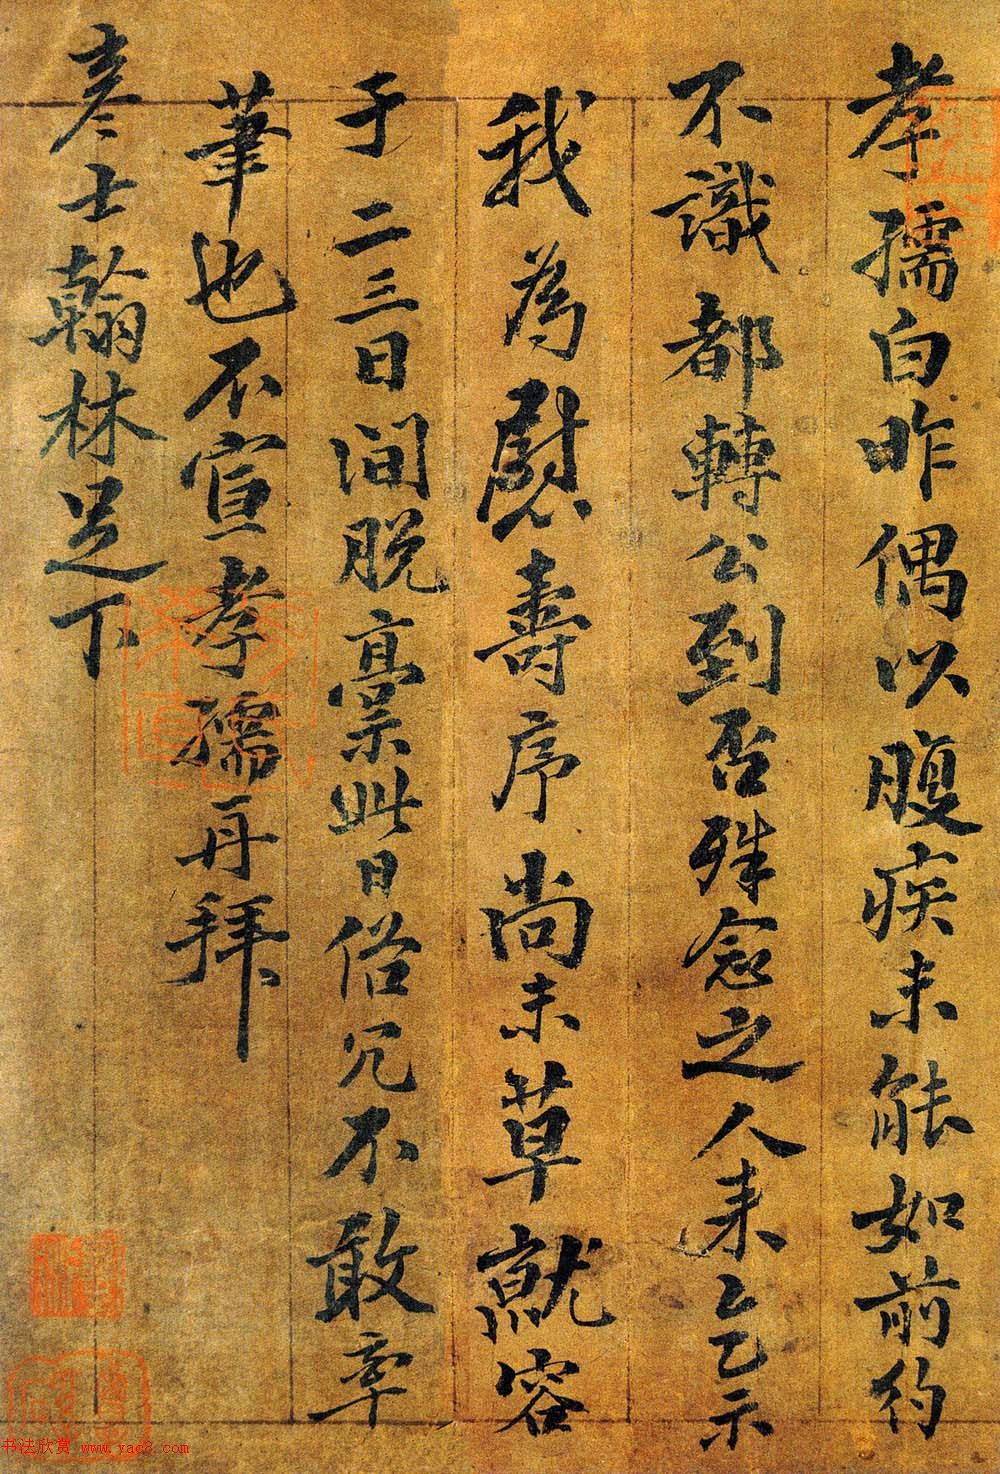 孝孺白昨偶以腹疾未能如前約
不識都轉公到否殊念之人來乞示
我為慰壽序尚未草就容
于二三日間脫稾此日俗冗不敢率
筆也不宣孝孺再拜
彥士翰林足下
书法欣赏 www.yac8.com